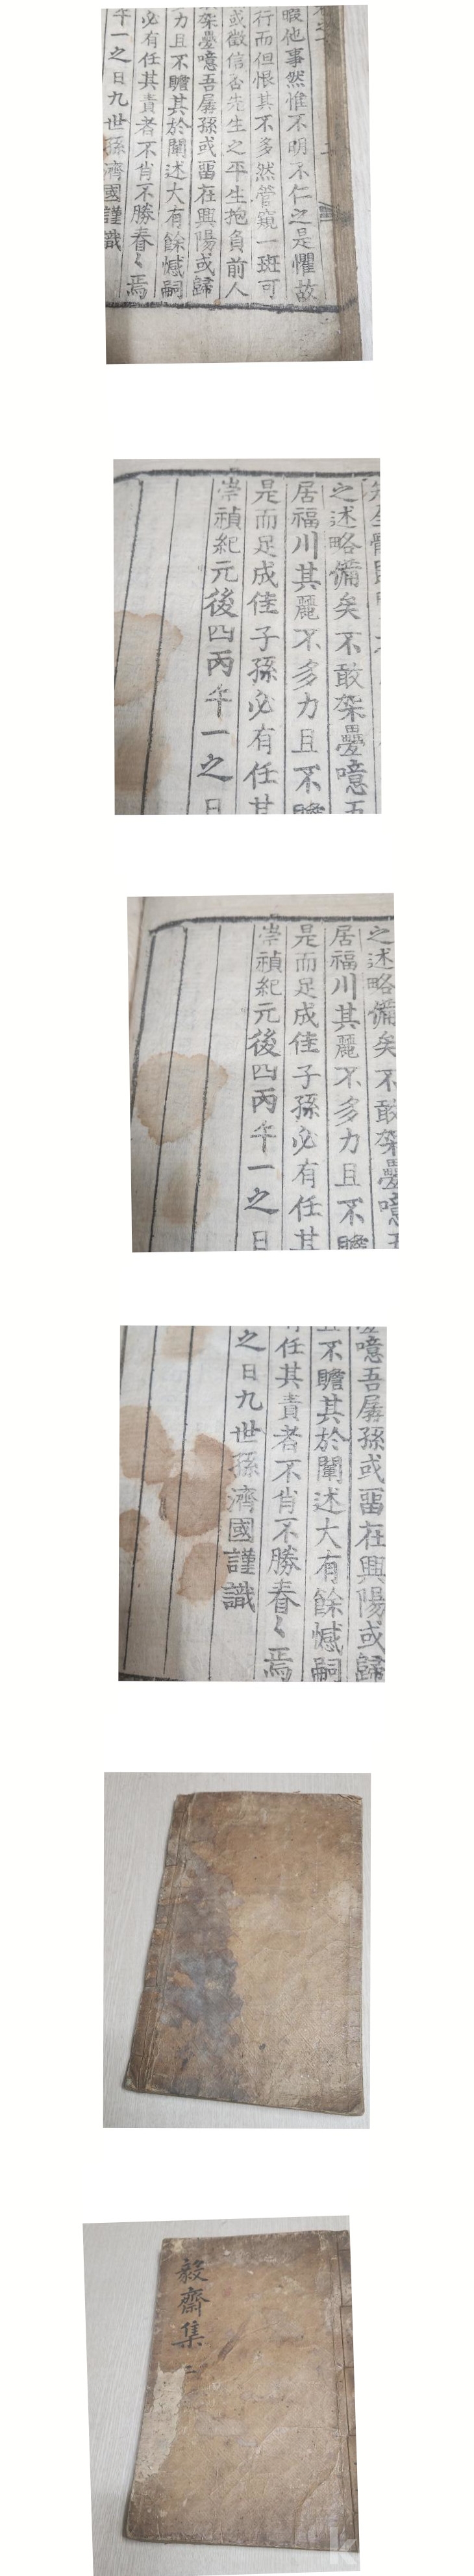 暇他事然惟不明不仁之是懼故
行而但恨其不多然管窺一斑可
或徵信否先生之平生抱負前人
架疊噫吾孱孫或畱在興陽或歸
力且不贍其於闡述大有餘憾嗣
必有任其責者不肖不勝眷〻焉
午一之日九世孫濟國謹識
之述略備矣不敢架疊噫
居福川其麗不多力且不贍
是而足成佳子孫必有任其
崇禎紀元後四丙午一之日
之述略備矣不敢架疊噫
居福川其麗不多力且不贍
是而足成佳子孫必有任其
崇禎紀元後四丙午一之日
疊噫吾孱孫或畱在興陽或歸
且不贍其於闡述大有餘憾嗣
任其責者不肖不勝眷〻焉
之日九世孫濟國謹識
毅齋集 二
k